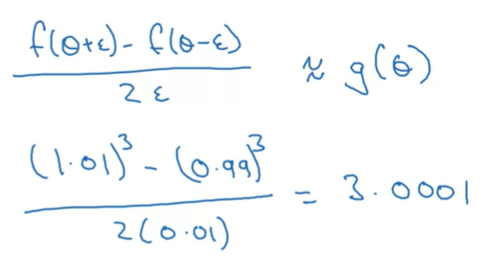 f(θ+ε) - f(θ-ε)
2ε
≈ g(θ)
(1.01)³ - (0.99)³
2(0.01)
= 3.0001